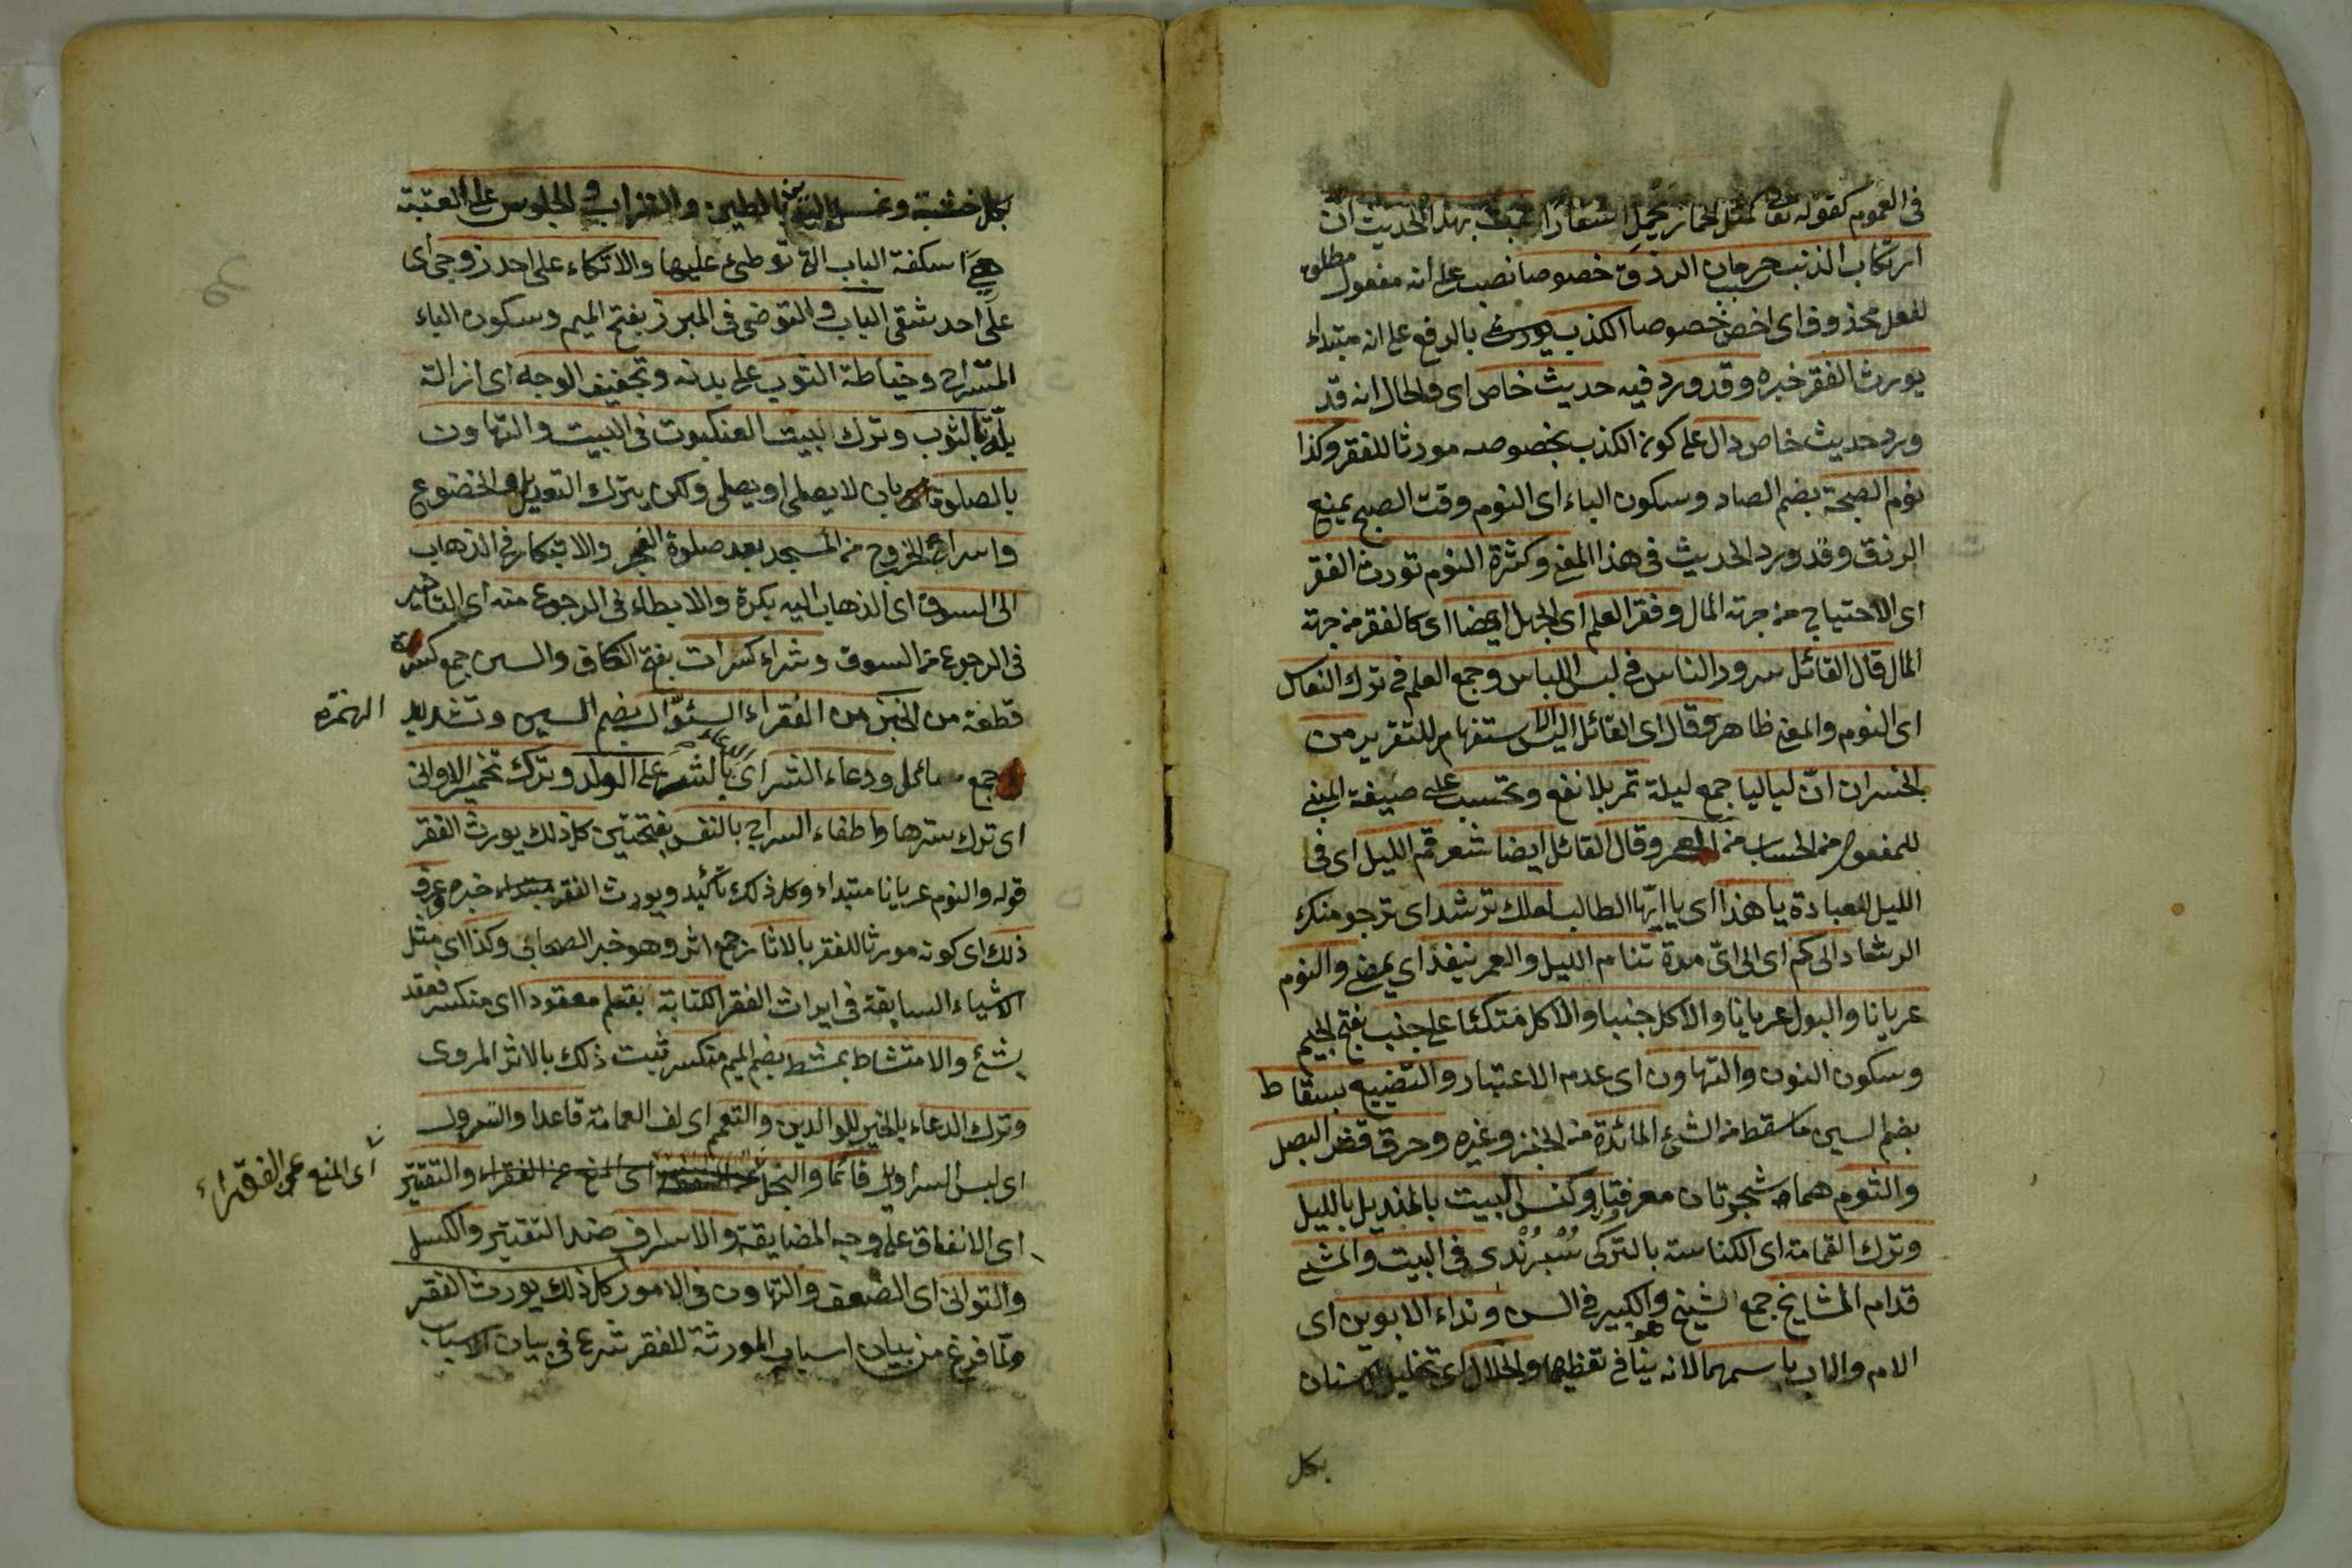 في العموم كقوله تعالى كمثل الحمار يحمل اسفارا بهذا الحديث ان
ارتكاب الذنب سبب حرمان الرزق خصوصا نصب على انه مفعول مطلق
لفعل محذوف اى اخص خصوصا الكذب يورث بالرفع على انه مبتداء
يورث الفقر خبره وقد ورد فيه حديث خاص اى والحال انه قد
ورد حديث خاص دال على كون الكذب بخصوصه مورثا للفقر وكذا
نوم الصبحة بضم الصاد وسكون الباء اى النوم وقت الصبح يمنع
الرزق وقد ورد الحديث في هذا المعنى وكثرة النوم تورث الفقر
اى الاحتياج من جهة المال وفقر العلم اى الجهل ايضا اى كالفقر من جهة
المال قال القائل سرور الناس في لبس اللباس وجمع العلم في ترك النعاس
اى النوم والمعنى ظاهر وقال اى القائل اليس استفهام للتقرير من
الخسران ان لياليا جمع ليلة تمر بلا نفع وتحسب على صيغة المبنى
للمفعول من الحساب من العمر وقال القائل ايضا شعر قم الليل اى فى
الليل للعبادة يا هذا اى يا ايها الطالب لعلك ترشد اى ترجو منك
الرشاد الى كم اى الى اى مدة تنام الليل والعمر ينفد اى يمضى والنوم
عريانا والبول عريانا والاكل جنبا والاكل متكئا على جنب بفتح الجيم
وسكون النون والتهاون اى عدم الاعتبار والتضييع بسقاط
بضم السين ما سقط من الشئ المائدة من الخبز وغيره وحرق قشر البصل
والثوم هما شجرتان معروفتان وكنس البيت بالمنديل بالليل
وترك القمامة اى الكناسة بالتركى سُبُرُنْدى فى البيت والمشى
قدام المشايخ جمع الشيخ وهو الكبير في السن ونداء الابوين اى
الام والاب باسمهما لانه ينافى تعظيمهما والخلال اى تخليل الاسنان
بكل
بكل خشبة وغسل اليدين بالطين والتراب والجلوس على العتبة
هى اسكفة الباب التى توطئ عليها والاتكاء على احد زوجى اى
على احد شقى الباب والتوضى فى المبرز بفتح الميم وسكون الباء
المستراح وخياطة الثوب على بدنه وتجفيف الوجه اى ازالة
بلته بالثوب وترك بيت العنكبوت فى البيت والتهاون
بالصلوة بان لا يصلى او يصلى ولكن يترك التعديل والخضوع
واسراع الخروج من المسجد بعد صلوة الفجر والابتكار في الذهاب
الى السوق اى الذهاب اليه بكرة والابطاء فى الرجوع منه اى التاخير
فى الرجوع من السوق وشراء كسرات بفتح الكاف والسين جمع كسرة
قطعة من الخبز من الفقراء السئوّال بضم السين وتشديد الهمزة
جمع سائل ودعاء الشر اى بالشر على الولد وترك تخمير الاوانى
اى ترك سترها واطفاء السراج بالنفس بفتحتين كل ذلك يورث الفقر
قوله والنوم عريانا مبتداء وكل ذلك تأكيد ويورث الفقر خبره وعرف
ذلك اى كونه مورثا للفقر بالاثار جمع اثر وهو خبر الصحابى وكذا اى مثل
الاشياء السابقة فى ايراث الفقر الكتابة بقلم معقود اى منكسر فعقد
بشئ والامتشاط بمشط بضم الميم منكسر ثبت ذلك بالاثر المروى
وترك الدعاء بالخير للوالدين والتعمم اى لف العمامة قاعدا والتسرول
اى لبس السراويل قائما والبخل اى المنع عن الفقراء والتقتير
اى المنع عن الفقراء
اى الانفاق على وجه المضايقة والاسراف ضد التقتير والكسل
والتوانى اى الضعف والتهاون فى الامور كل ذلك يورث الفقر
ولما فرغ من بيان اسباب المورثة للفقر شرع فى بيان الاسباب